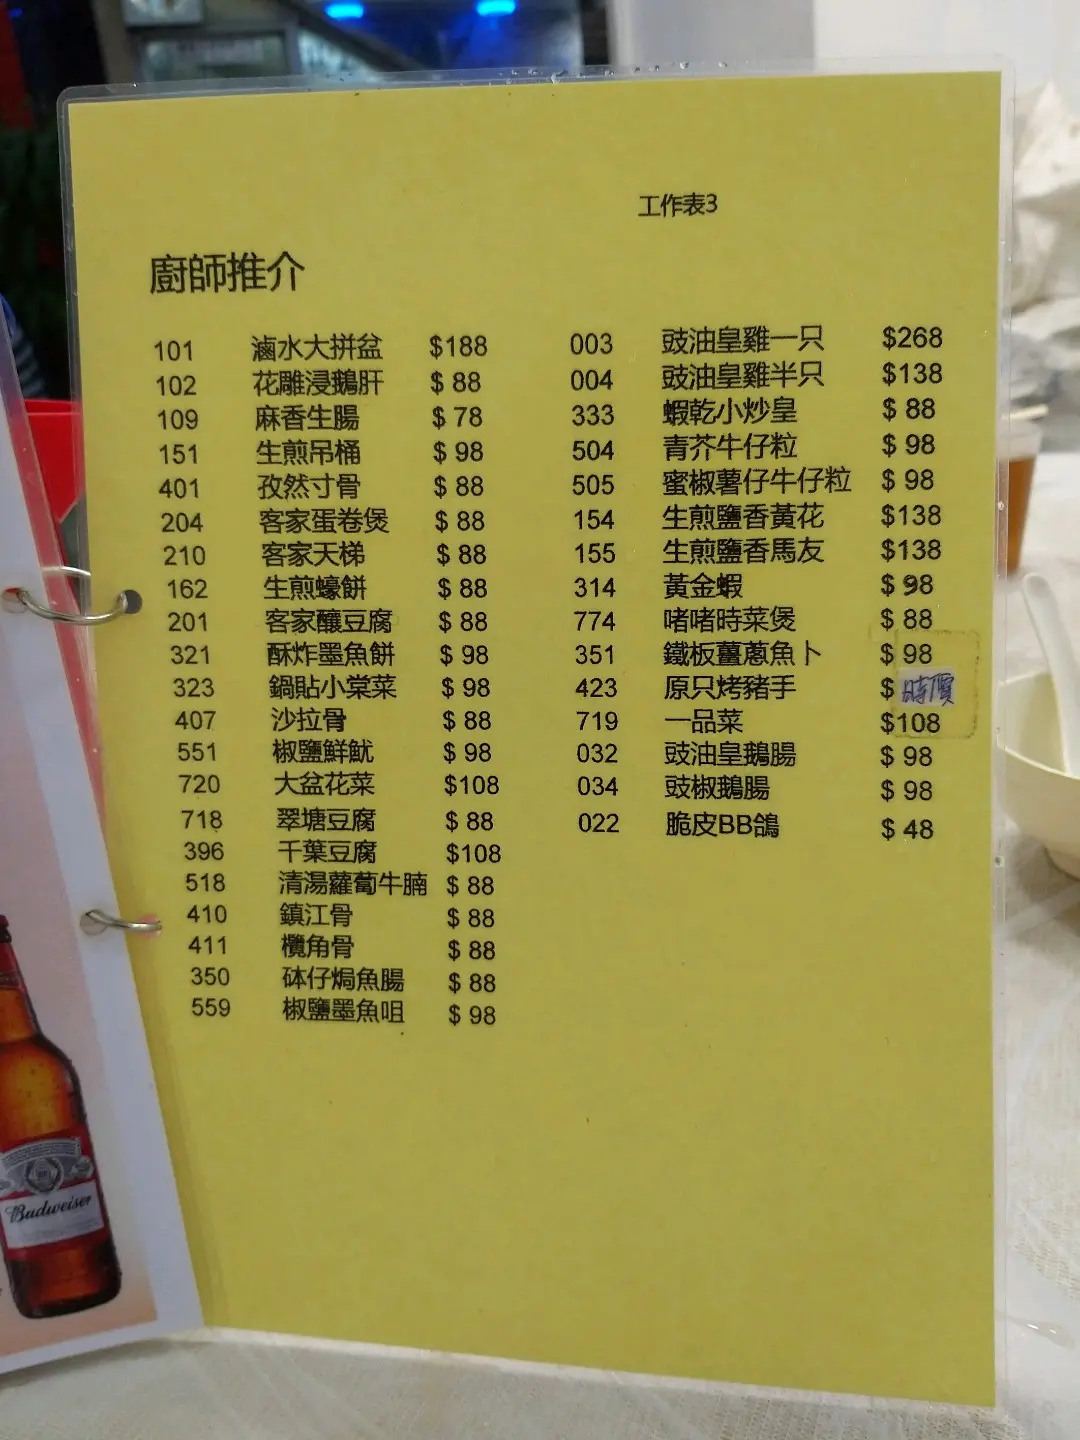 工作表3
廚師推介
101 滷水大拼盆 $188
102 花雕浸鵝肝 $ 88
109 麻香生腸 $ 78
151 生煎吊桶 $ 98
401 孜然寸骨 $ 88
204 客家蛋卷煲 $ 88
210 客家天梯 $ 88
162 生煎蠔餅 $ 88
201 客家釀豆腐 $ 88
321 酥炸墨魚餅 $ 98
323 鍋貼小棠菜 $ 98
407 沙拉骨 $ 88
551 椒鹽鮮魷 $ 98
720 大盆花菜 $108
718 翠塘豆腐 $ 88
396 千葉豆腐 $108
518 清湯蘿蔔牛腩 $ 88
410 鎮江骨 $ 88
411 欖角骨 $ 88
350 砵仔焗魚腸 $ 88
559 椒鹽墨魚咀 $ 98
003 豉油皇雞一只 $268
004 豉油皇雞半只 $138
333 蝦乾小炒皇 $ 88
504 青芥牛仔粒 $ 98
505 蜜椒薯仔牛仔粒 $ 98
154 生煎鹽香黃花 $138
155 生煎鹽香馬友 $138
314 黃金蝦 $ 98
774 啫啫時菜煲 $ 88
351 鐵板薑蔥魚卜 $ 98
423 原只烤豬手 $ 時價
719 一品菜 $108
032 豉油皇鵝腸 $ 98
034 豉椒鵝腸 $ 98
022 脆皮BB鴿 $ 48
Budweiser